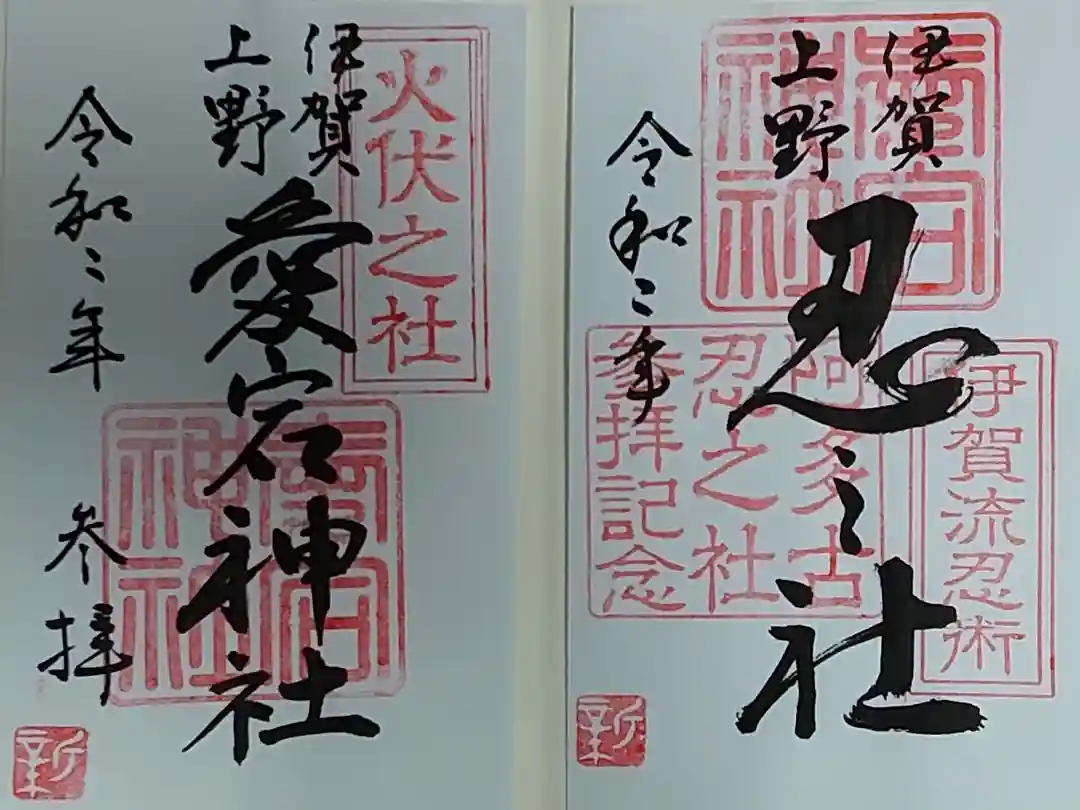 伊賀
上野
忍之社
令和二年
愛宕
神社
伊賀流忍術
阿多古
忍之社
參拝記念
新
火伏之社
伊賀
上野
愛宕神社
愛宕
神社
令和二年
参拝
新